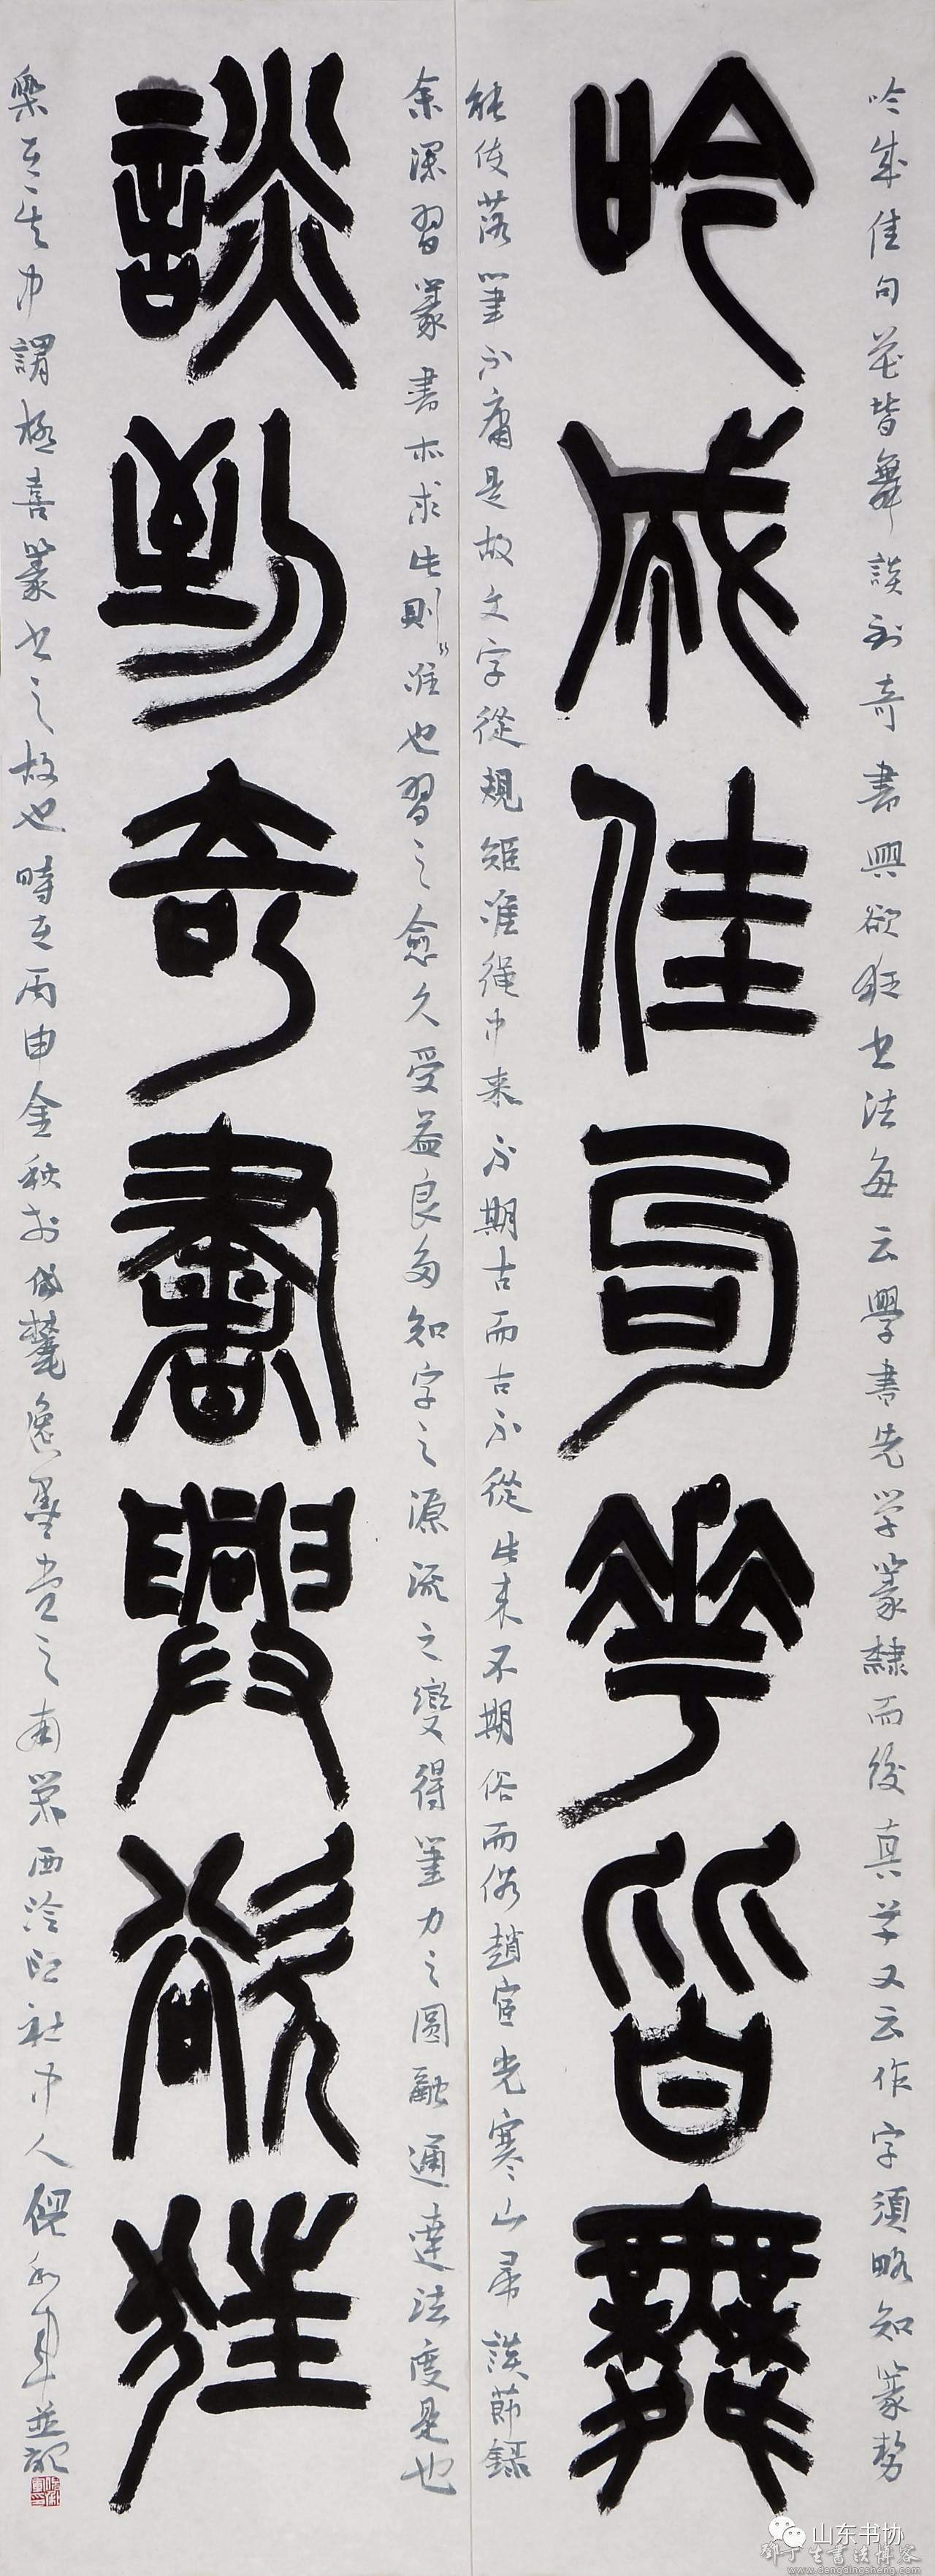 吟成佳句花皆舞談到奇書興欲狂書法每云學書先学篆隸而後真草又云作字須略知篆勢
吟成佳句華皆舞
能使落筆不庸是故文字從規矩准繩中来不期古而古不從此来不期俗而俗趙宧光寒山帚談節録
余深習篆書亦求此則唯也習之愈久受益良多知字之源流之變得筆力之圓融通達法度是也
談到奇書興欲狂
樂在其中謂極喜篆書之故也時在丙申金秋於岱麓逸墨堂之南榮西泠印社中人倪和軍並記
山东书协
邓丁生書法博客
www.dengdingsheng.com